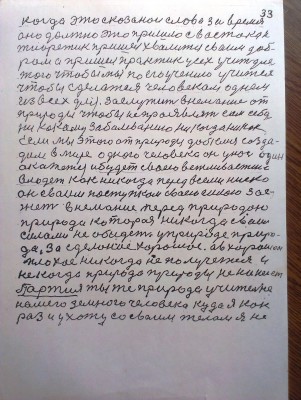 33
когда это сказоноя слово за время
оно должно это пришло с востока как
теоретик пришел хвалится своим доб-
ром а пришел практик усех учит для
того чтобы мы по его учению учится
чтобы сделатся человеком одном
из всех дел). заслужит внемание от
природы чтобы не проявлят сам себе
ни какому заболванию никогда никак
если мы этого от природы добемся созда-
дим в мире одного человека он унас один
окажется и будет своею внемателностю
влюдях как некогда перед всеми нико
он своим поступком своею силою зас-
жет внемание перед природою
природа которая некогда своими
силами не обидет. у природе приро-
да. За сделаное хорошое. а в хорошом
плохое некогда не получется и
некогда природа природу не накажет
Партия ты же природа учителка
нашего земного человека куда я как
раз и ухожу со своим телом я не